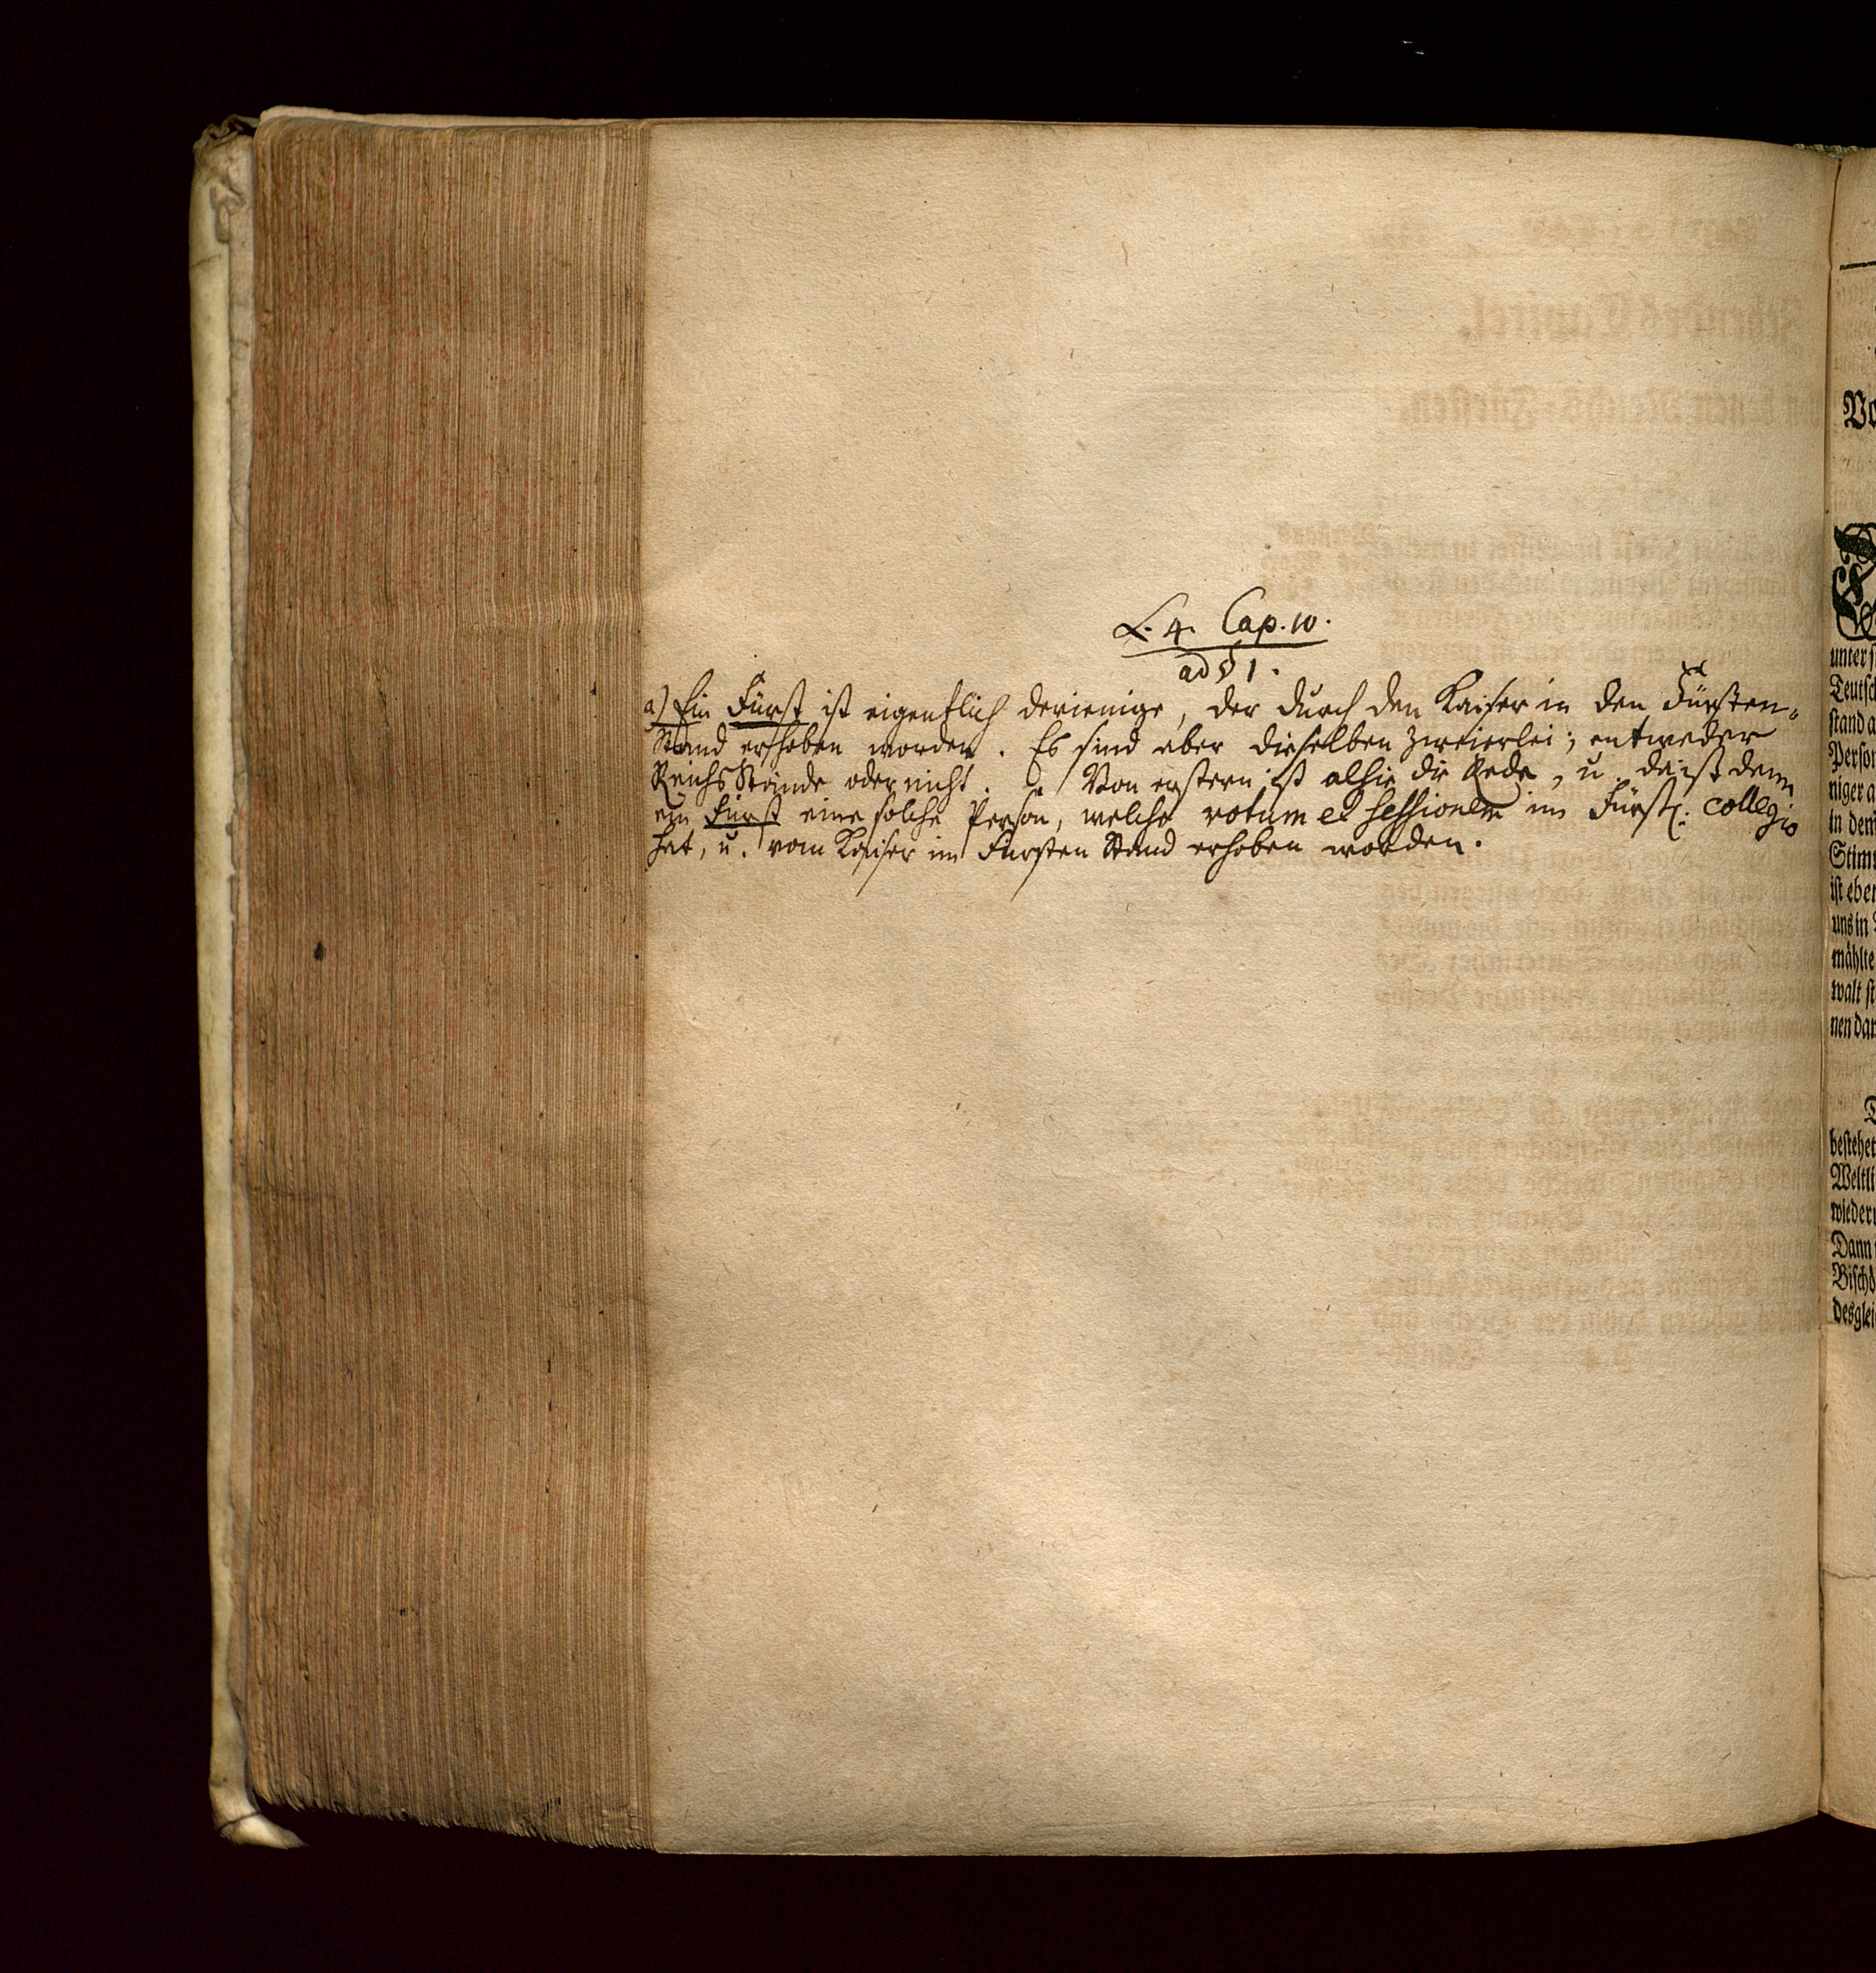 L. 4. Cap. 10.
ad § 1.
a) Ein Fürst ist eigentlich derienige, der durch den Kaiser in den Fürsten-
Stand erhoben worden. Es sind aber dieselben zweierlei; entweder
Reichs Stände oder nicht. Von erstern ist alhie die Rede, u. da ist denn
ein Fürst eine solche Person, welche votum et sessionem im Fürstl. collegio
hat, u. vom Kaiser im Fürsten Stand erhoben worden.
Vo
unter s
Teutsch
stand a
Person
niger a
in dem
Stim
ist eben
uns in
mählte
walt st
nen dar
bestehet
Weltli
wieder
Dann
Bischö
desglei